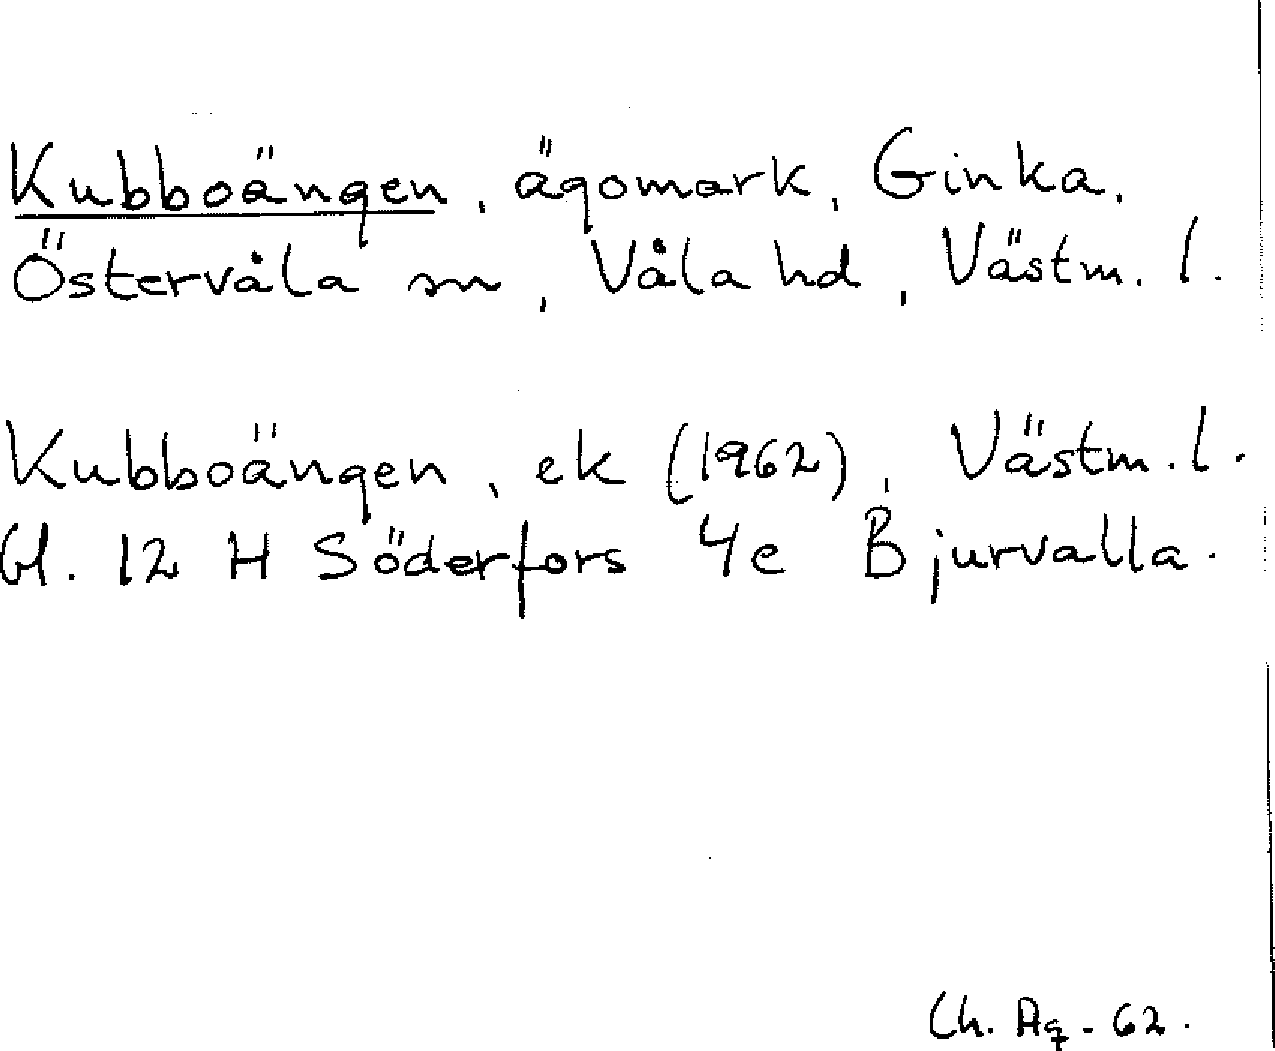 Kubboängen, ägomark, Ginka,
Östervåla sn, Våla hd, Västm. l.
Kubboängen, ek (1962), Västm. l.
bl. 12 H Söderfors 4e Bjurvalla.
Ch. Ag. - 62.